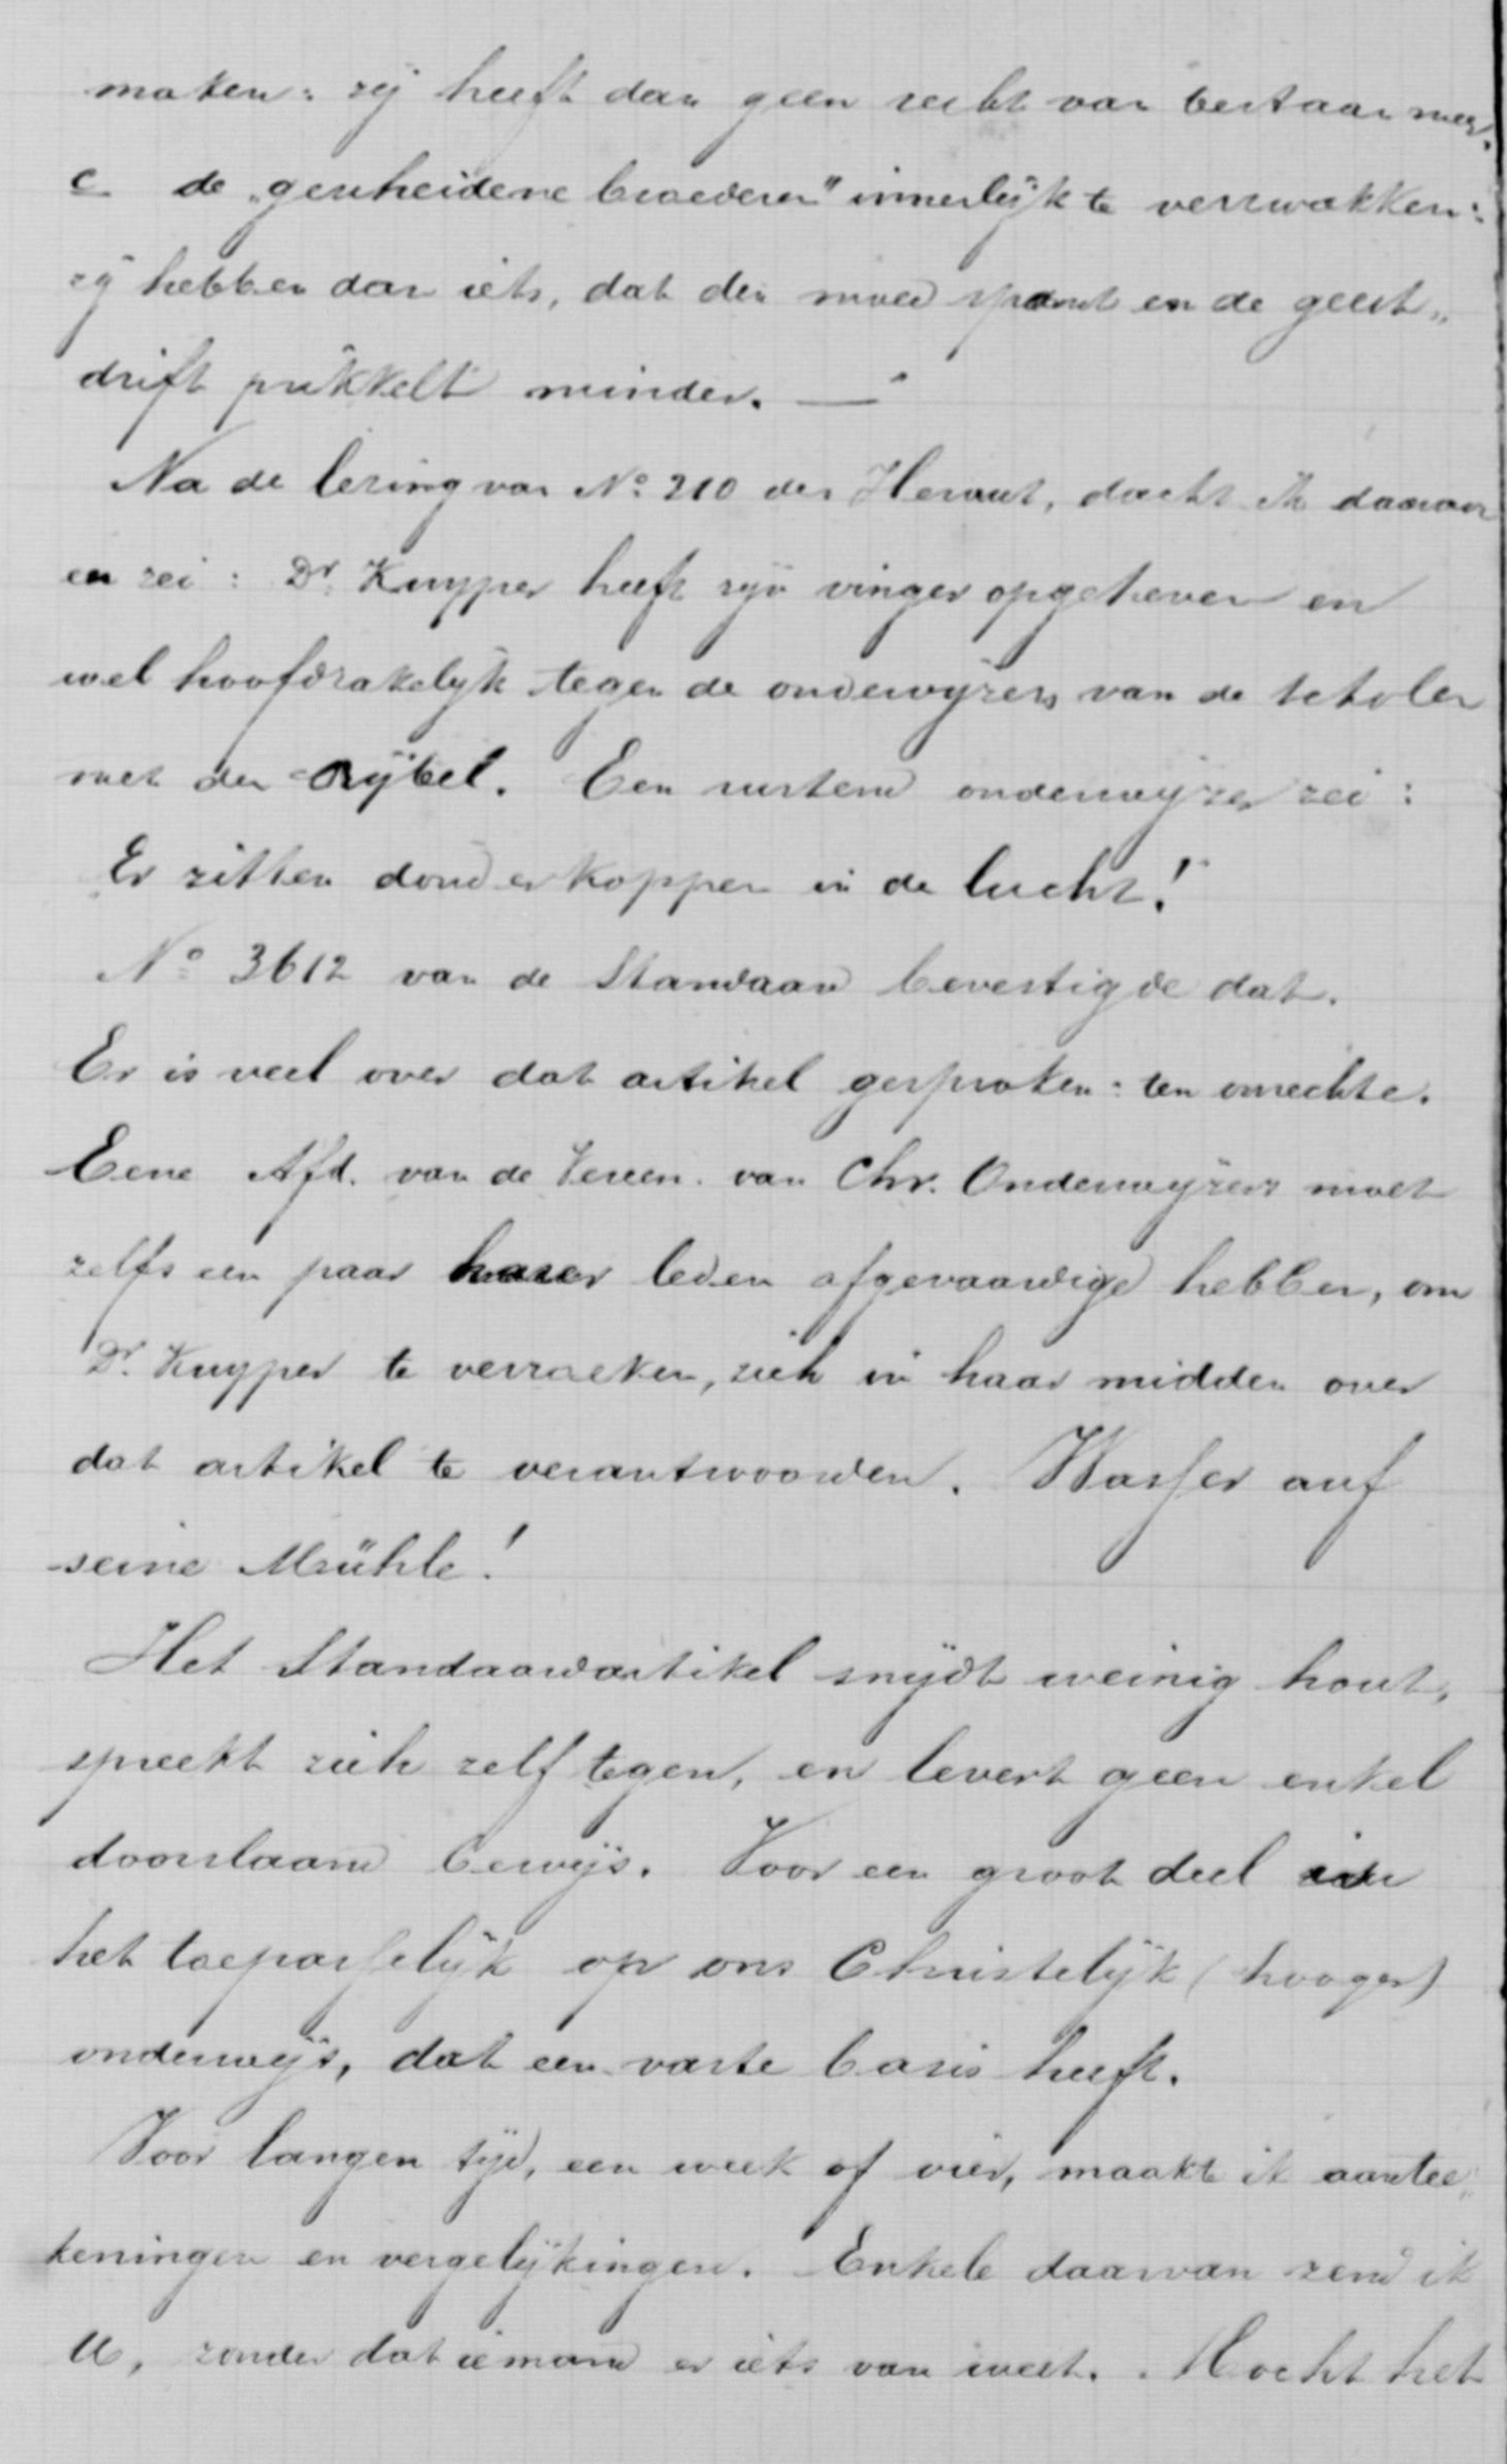 maken: zij heeft dan geen recht van bestaan meer.
c de „gescheidene broederen" innerlijk te verzwakken:
zij hebben dan iets, dat den moed spant en de geest„
drift prikkelt minder. —"
Na de lezing van No 210 der Heraut, dacht ik daaraan
en zei: Dr. Kuyper heeft zijn vinger opgeheven en
wel hoofdzakelijk tegen de onderwijzers van de scholen
met den Bijbel. Een rustend onderwijzer zei:
Er zitten donderkoppen in de lucht!
No 3612 van de Standaard bevestigde dat.
Er is veel over dat artikel gesproken: ten onrechte.
Eene Afd. van de Vereen. van Chr. Onderwijzers moet
zelfs een paar harer leden afgevaardigd hebben, om
Dr. Kuyper te verzoeken, zich in haar midden over
dat artikel te verantwoorden. Wasser auf
seine Mühle!
Het Standaardartikel snijdt weinig hout,
spreekt zich zelf tegen, en levert geen enkel
doorslaand bewijs. Voor een groot deel is
het toepasselijk op ons Christelijk (hooger)
onderwijs, dat een vaste basis heeft.
Voor langen tijd, een week of vier, maakte ik aantee„
keningen en vergelijkingen. Enkele daarvan zend ik
U, zonder dat iemand er iets van weet. Mocht het